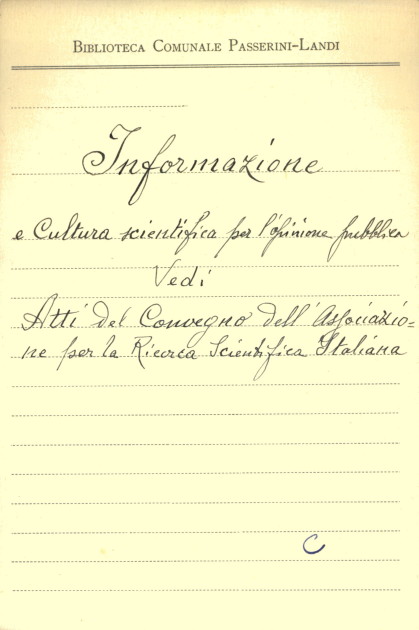 Biblioteca Comunale Passerini-Landi
Informazione
e Cultura scientifica per l'opinione pubblica
Vedi
Atti del Convegno dell'Associazio=
ne per la Ricerca Scientifica Italiana
C